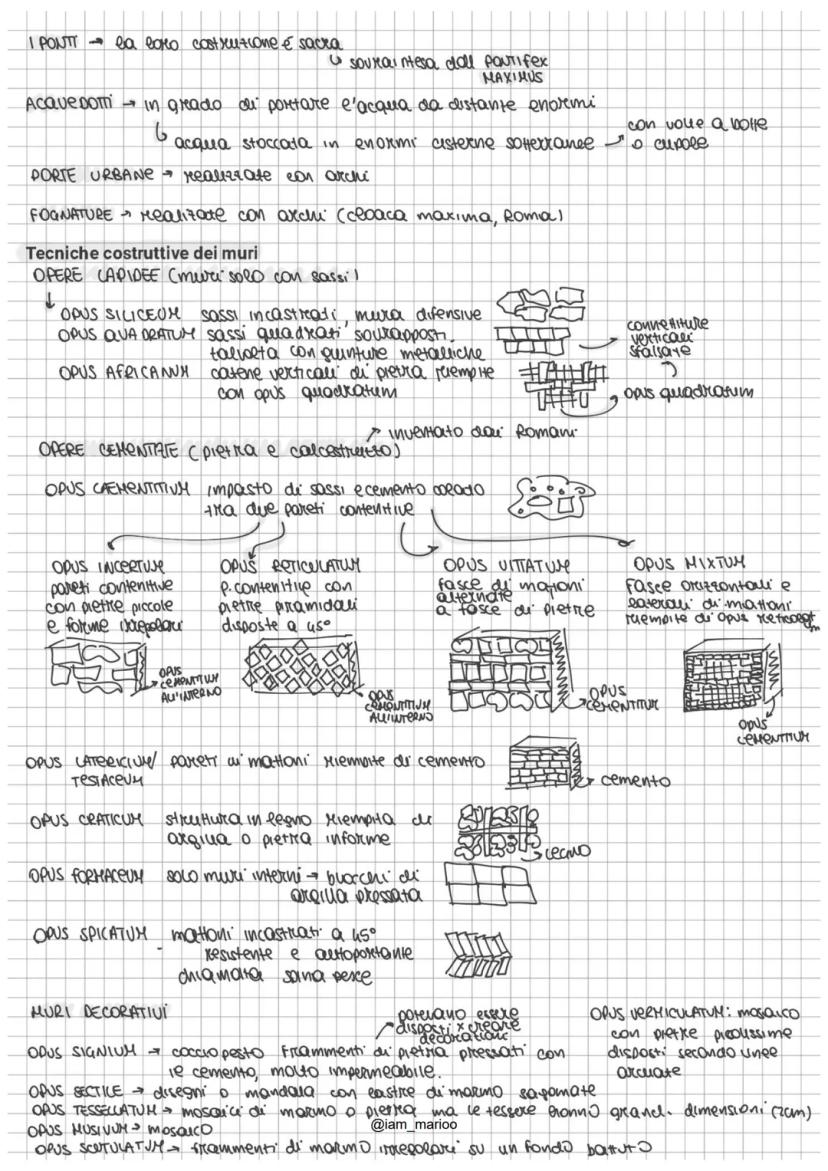 I PONTI → la loro costruzione é sacra
↳ sovraintesa dall PONTIFEX
MAXIMUS
ACQUEDOTTI → in grado di portare l'acqua da distante enormi
↳ acqua stoccata in enormi cisterne sotterranee → con volte a botte
o cupole
PORTE URBANE → realizzate con archi
FOGNATURE → realizate con archi (cloaca maxima, Roma)
Tecniche costruttive dei muri
OPERE LAPIDEE (muri solo con sassi)
↓
OPUS SILICEUM sassi incastrati, mura difensive
OPUS QUADRATUM sassi quadrati sovrapposti.
talvolta con giunture metalliche
connettiture
verticali
sfalsate
OPUS AFRICANUM catene verticali di pietra riempite
con opus quadratum
opus quadratum
inventato dai Romani
OPERE CEMENTATE (pietra e calcestruzzo)
OPUS CAEMENTITIUM impasto di sassi e cemento colado
tra due pareti contenitive
OPUS INCERTUM
pareti contenitive
con pietre piccole
e forme irregolari
OPUS CEMENTITIUM
ALL'INTERNO
OPUS RETICULATUM
p. contenitive con
pietre piramidali
disposte a 45°
OPUS CEMENTITIUM
ALL'INTERNO
OPUS VITTATUM
fasce di mattoni
alternate
a fasce di pietre
OPUS
CEMENTITIUM
OPUS MIXTUM
Fasce orizzontali e
laterali di mattoni
riempite di opus
OPUS
CEMENTITIUM
OPUS LATERICIUM/ pareti di mattoni riempite di cemento
TESTACEUM
cemento
OPUS CRATICUM struttura in legno riempita di
argilla o pietra informe
LEGNO
OPUS FORMACEUM solo muri interni → blocchi di
argilla pressata
OPUS SPICATUM mattoni incastrati a 45°
resistente e autoportante
chiamata spina pesce
MURI DECORATIVI
potevano essere
disposti x creare
decorazioni
OPUS SIGNIUM → cocciopesto frammenti di pietra pressati con
le cemento, molto impermeabile.
OPUS VERMICULATUM: mosaico
con pietre piccolissime
disposti secondo linee
arcuate
OPUS SECTILE → disegni o mandala con lastre di marmo sagomate
OPUS TESSELLATUM → mosaici di marmo o pietra ma le tessere hanno grandi dimensioni (2cm)
OPUS MUSIVUM → mosaico
@iam_marioo
OPUS SCUTULATUM → frammenti di marmo irregolari su un fondo battuto